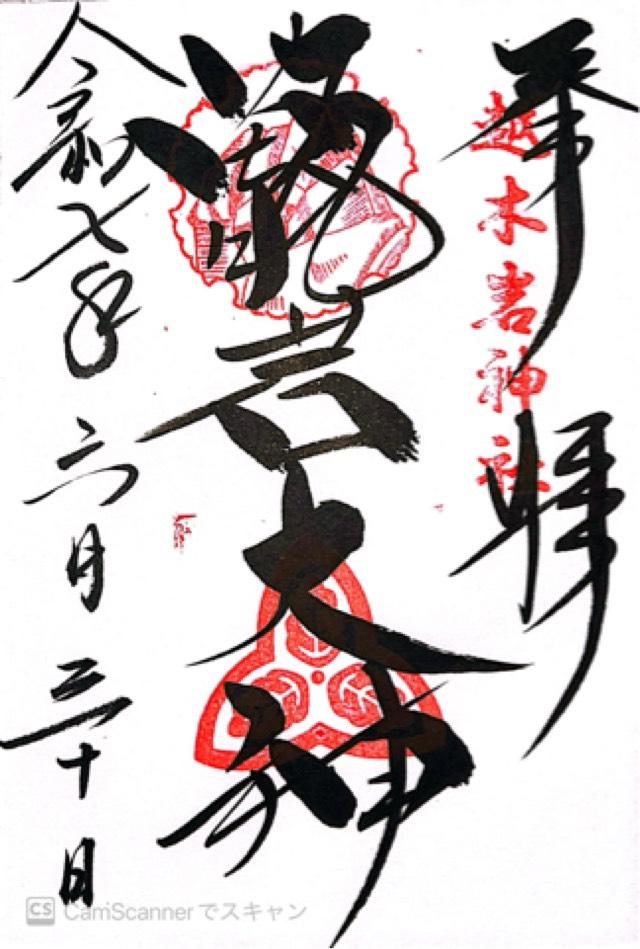 奉拝
越木岩神社
甑岩大神
令和七年六月三十日
CS CamScannerでスキャン